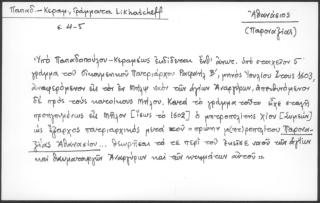 Παπαδ.-Κεραμ., Γράμματα Likhatcheff
σ. 4-5
Ἀθανάσιος
(Παροναξίας)
Ὑπὸ Παπαδοπούλου-Κεραμέως ἐκδίδεται ἐνθ' ἀνωτ. ὑπὸ στοιχεῖον 5
γράμμα τοῦ Οἰκουμενικοῦ Πατριάρχου Ραφαὴλ Β', μηνὸς Ἰουλίου ἔτους 1603,
ἀναφερόμενον εἰς τὸν ἐν Μήλῳ ναὸν τῶν ἁγίων Ἀναργύρων, ἀπευθυνόμενον
δὲ πρὸς τοὺς κατοίκους Μήλου. Κατὰ τὸ γράμμα τοῦτο εἶχε σταλῆ
προηγουμένως εἰς Μῆλον [ἴσως τὸ 1602] ὁ μητροπολίτης Χίου [
ὡς ἔξαρχος πατριαρχικὸς μετὰ τοῦ "πρώην μ(ητ)ροπολίτου Παρονα-
ξίας Ἀθανασίου... θεωρῆσαι τὰ περὶ τοῦ ναοῦ τῶν ἁγίων
καὶ θαυματουργῶν Ἀναργύρων καὶ τῶν κτημάτων αὐτοῦ